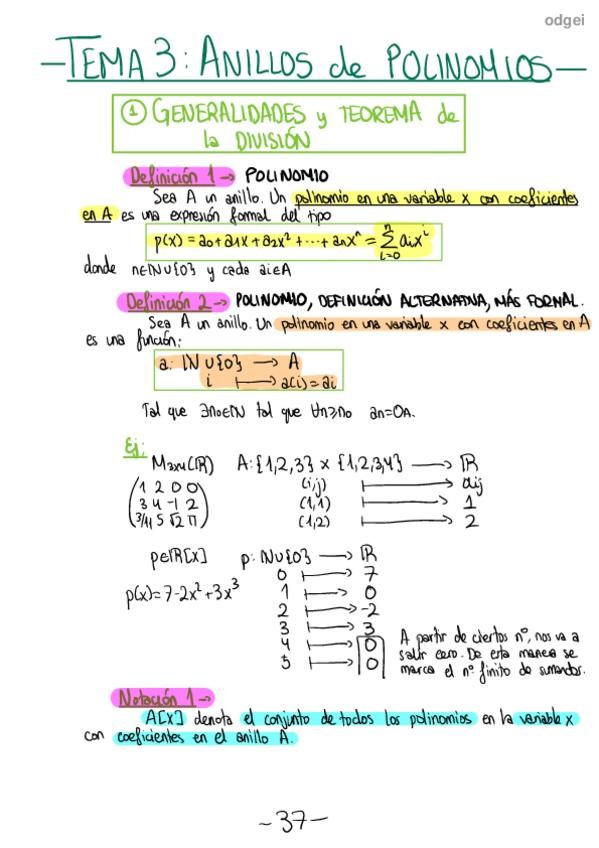 odgei
- TEMA 3: ANILLOS de POLINOMIOS -
① GENERALIDADES y TEOREMA de
la DIVISIÓN
Definición 1 → POLINOMIO
Sea A un anillo. Un polinomio en una variable x con coeficientes
en A es una expresión formal del tipo
p(x) = a₀ + a₁x + a₂x² + ... + aₙxⁿ = ∑ᵢ₌₀ⁿ aᵢxⁱ
donde n∈ℕ∪{0} y cada aᵢ∈A
Definición 2 → POLINOMIO, DEFINICIÓN ALTERNATIVA, MÁS FORMAL.
Sea A un anillo. Un polinomio en una variable x con coeficientes en A
es una función:
a: ℕ∪{0} → A
i ↦ a(i) = aᵢ
Tal que ∃n₀∈ℕ tal que ∀n≥n₀ aₙ=0A.
Ej:
M₃ₓ₄(ℝ) A: {1,2,3} x {1,2,3,4} → ℝ
(i,j) ↦ aij
(1,1) ↦ 1
(1,2) ↦ 2
1 2 0 0
3 4 -1 2
3/4 5 √2 π
p∈ℝ[x] p: ℕ∪{0} → ℝ
p(x) = 7-2x²+3x³
0 ↦ 7
1 ↦ 0
2 ↦ -2
3 ↦ 3
4 ↦ 0
5 ↦ 0
A partir de ciertos nº, nos va a
salir cero. De esta manera se
marca el nº finito de sumandos.
Notación 1 →
A[x] denota el conjunto de todos los polinomios en la variable x
con coeficientes en el anillo A.
- 37 -